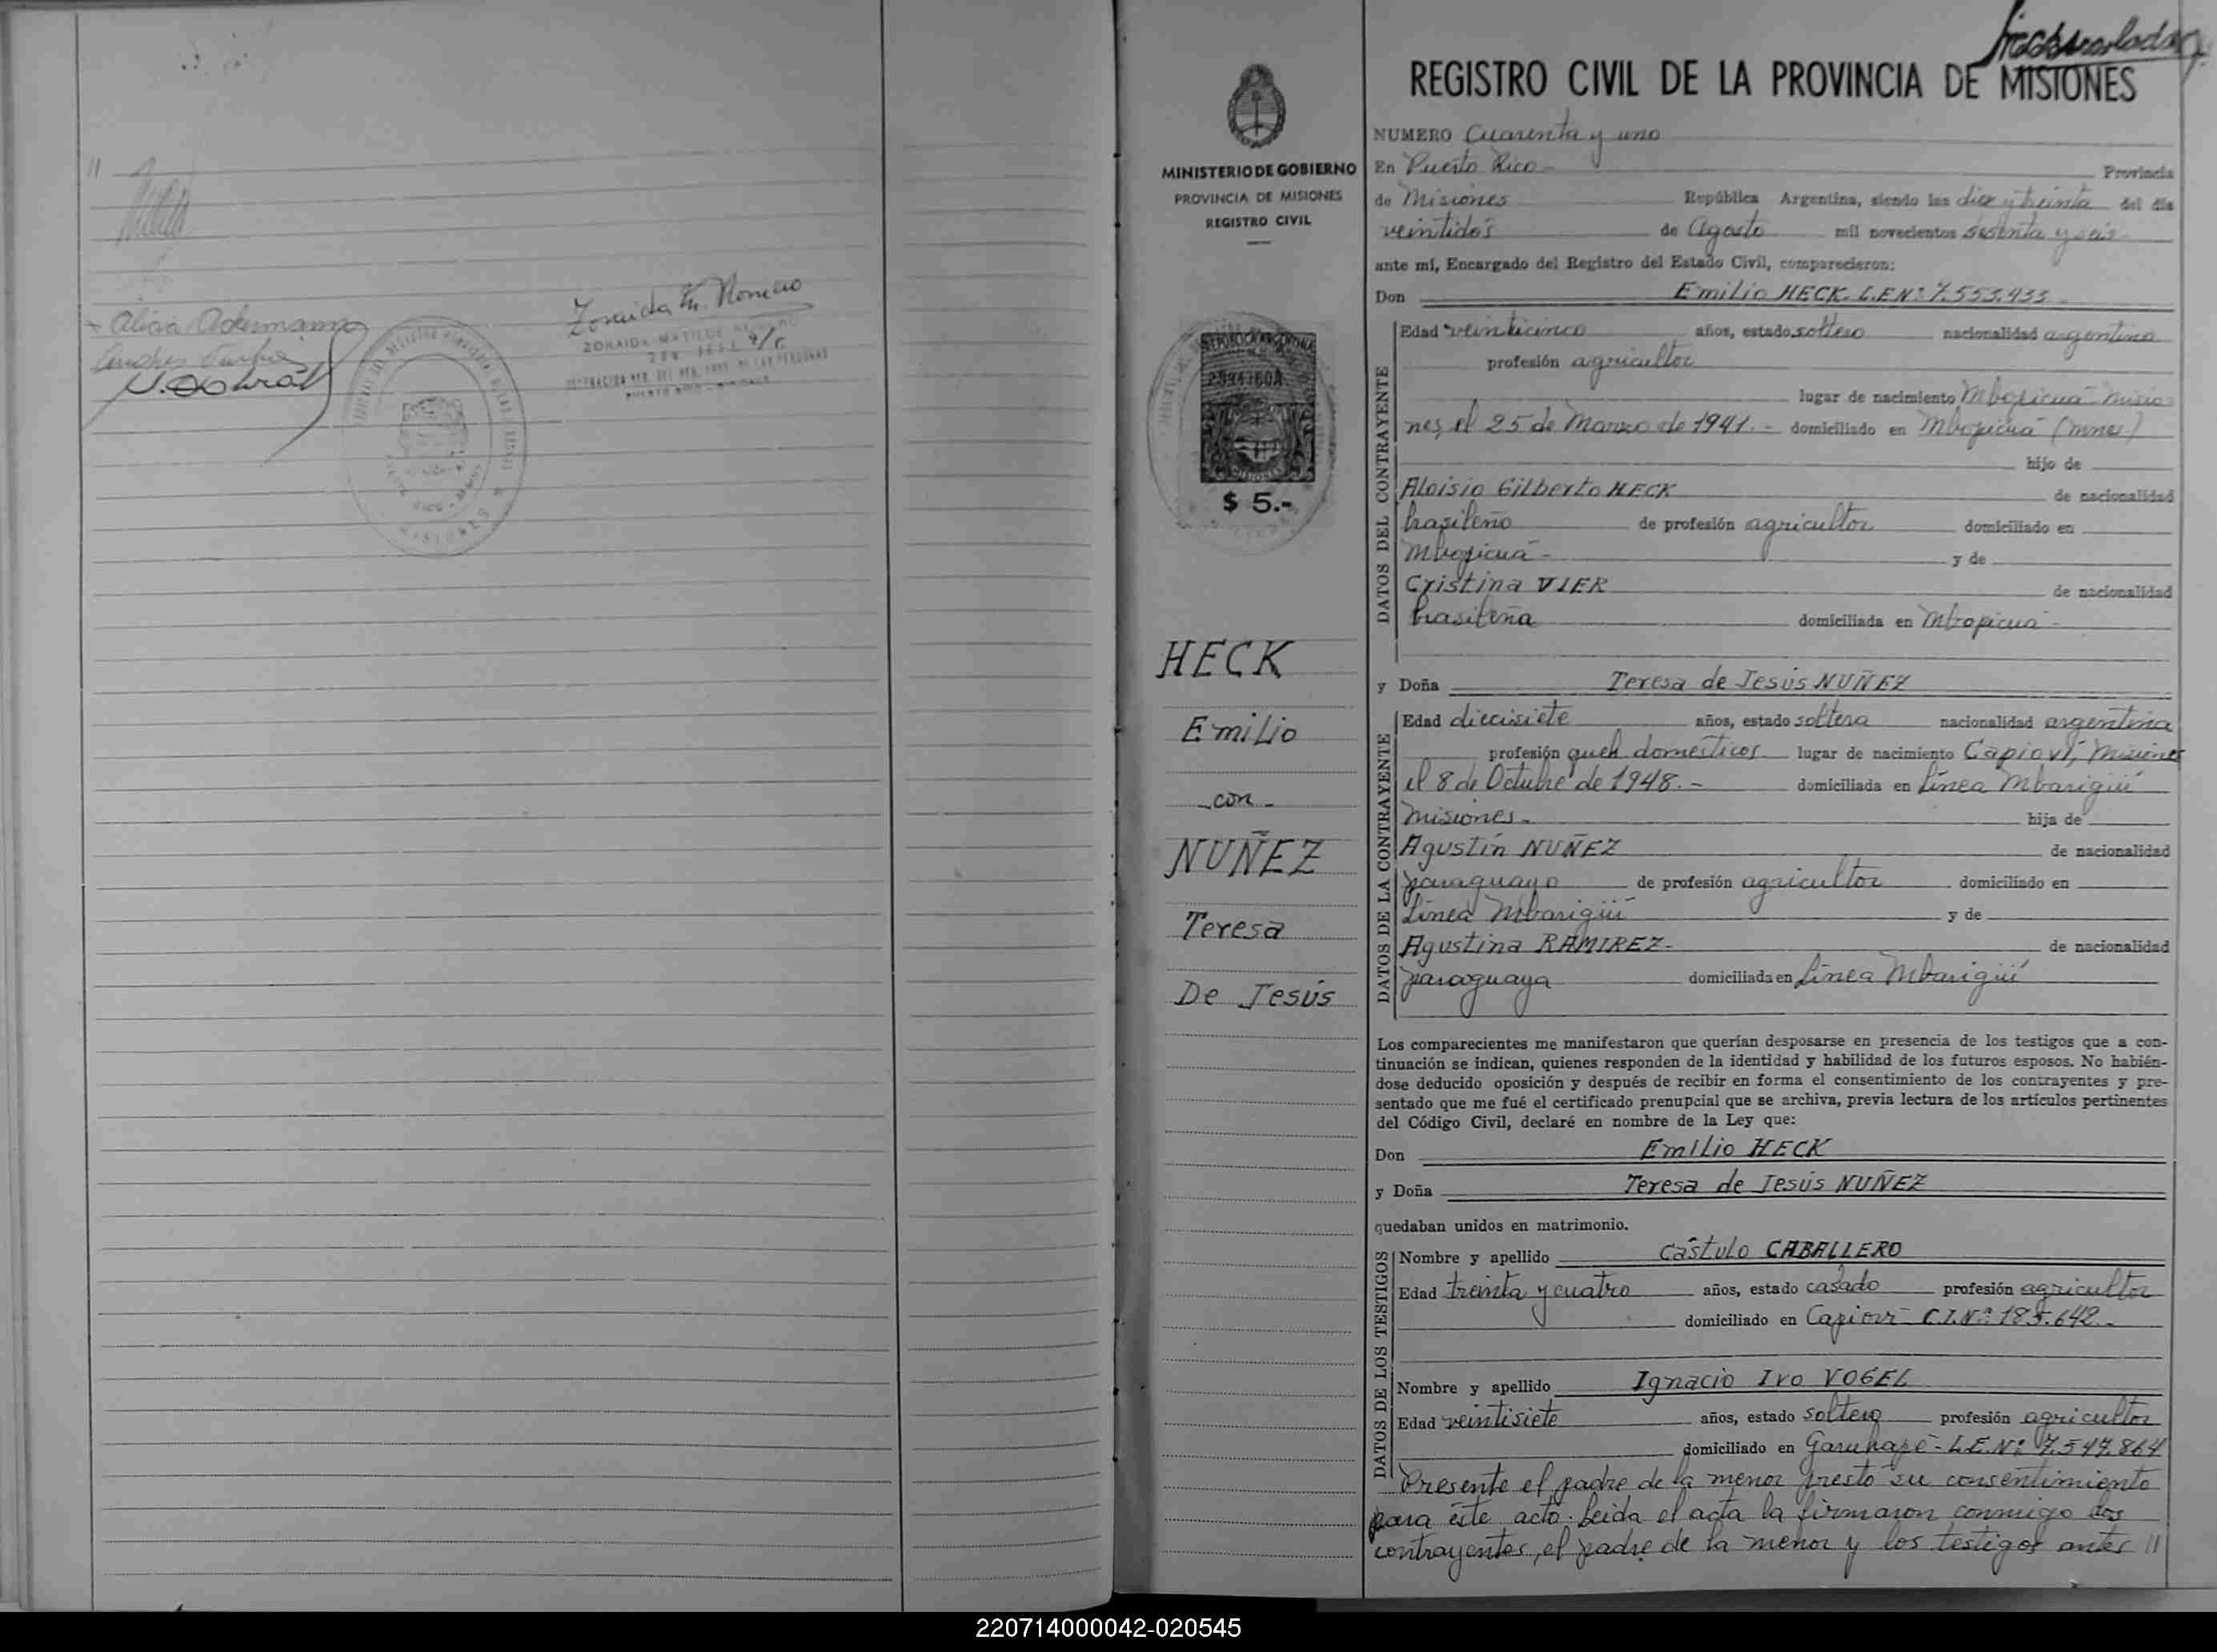 //
Alicia Ackermann
Zoraida M. Romero
ZORAIDA MATILDE
PUERTO RICO - MISIONES
MISIONES
MINISTERIO DE GOBIERNO
PROVINCIA DE MISIONES
REGISTRO CIVIL
REPUBLICA ARGENTINA
MISIONES
$ 5.-
HECK
Emilio
-con-
NUÑEZ
Teresa
De Jesús
REGISTRO CIVIL DE LA PROVINCIA DE MISIONES
NUMERO Cuarenta y uno
En Puerto Rico Provincia
de Misiones República Argentina, siendo las diez y treinta del día
veintidós de Agosto mil novecientos sesenta y seis
ante mí, Encargado del Registro del Estado Civil, comparecieron:
Don Emilio HECK. L.E.Nº: 7.553.933
DATOS DEL CONTRAYENTE
Edad veinticinco años, estado soltero nacionalidad argentina
profesión agricultor
lugar de nacimiento Mbopicuá - Misio
nes, el 25 de Marzo de 1941.- domiciliado en Mbopicuá (mnes)
hijo de
Aloisio Gilberto HECK de nacionalidad
brasileño de profesión agricultor domiciliado en
Mbopicuá - y de
Cristina VIER de nacionalidad
brasileña domiciliada en Mbopicuá -
y Doña Teresa de Jesús NUÑEZ
DATOS DE LA CONTRAYENTE
Edad diecisiete años, estado soltera nacionalidad argentina
profesión queh. domésticos lugar de nacimiento Capioví, Misiones
el 8 de Octubre de 1948.- domiciliada en Línea Mbarigüí
Misiones.- hija de
Agustín NUÑEZ de nacionalidad
paraguayo de profesión agricultor domiciliado en
Línea Mbarigüí y de
Agustina RAMIREZ- de nacionalidad
paraguaya domiciliada en Línea Mbarigüí
Los comparecientes me manifestaron que querían desposarse en presencia de los testigos que a con-
tinuación se indican, quienes responden de la identidad y habilidad de los futuros esposos. No habién-
dose deducido oposición y después de recibir en forma el consentimiento de los contrayentes y pre-
sentado que me fué el certificado prenupcial que se archiva, previa lectura de los artículos pertinentes
del Código Civil, declaré en nombre de la Ley que:
Don Emilio HECK
y Doña Teresa de Jesús NUÑEZ
quedaban unidos en matrimonio.
DATOS DE LOS TESTIGOS
Nombre y apellido Cástulo CABALLERO
Edad treinta y cuatro años, estado casado profesión agricultor
domiciliado en Capioví - C.I.Nº: 185.642.-
Nombre y apellido Ignacio Ivo VOGEL
Edad veintisiete años, estado soltero profesión agricultor
domiciliado en Garuhapé - L.E.Nº: 7.547.864
Presente el padre de la menor prestó su consentimiento
para éste acto. Leida el acta la firmaron conmigo los
contrayentes, el padre de la menor y los testigos antes //
220714000042-020545